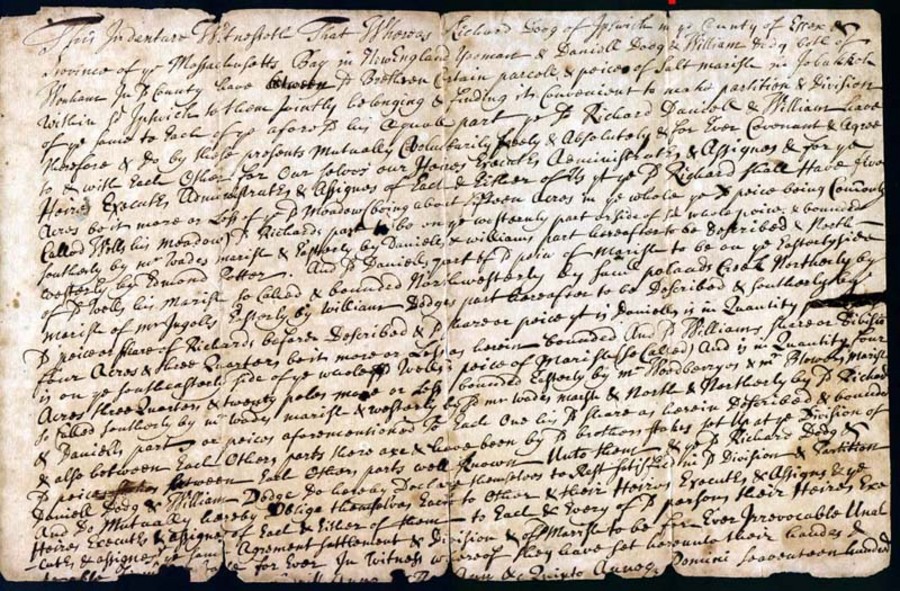 This Indenture Witnesseth That Whereas Richard Dodg of Ipswich in ye County of Essex &
Province of ye Massachusetts Bay in New England Yeoman & Daniell Dodg & William Dodg both of
Wenham In sd County have between sd Brethren Certain parcell & peice of Salt marish in
Within sd Ipswich to them Joyntly belonging & finding it Convenient to make partition & Division
of ye same to Each of ye aforesd his Aquall part ye sd Richard Daniell & William have
therefore & do by these presents Mutually Voluntarily freely & Absolutely & for Ever Covenant & Agree
to & with Each Other for Our selves our Heires Executrs Administrates & Assignes & for ye
Heires Executrs Administrates & Assignes of Each & Either of Us yt ye sd Richard shall Have five
Acres be it more or Less of ye sd Meadow (being about fifteen Acres in ye whole ye peice being Comonly
Called Wells his Meadow) sd Richards part to be on ye westernly part or side of sd whole peice, & bounded
Southerly by mr Wades marish & Easterly by Daniels & williams part hereafter to be Described & North
westerly by Edmond Potter. And sd Daniels part of sd peice of Marish to be on ye Easterly side
of sd Wells his Marish so Called & bounded Northwesterly by Creek Northerly by
marish of mr Ingolls Easterly by William Dodges part hereafter to be Described & Southerly by
sd peice or share of Richards before Described & sd share or peice yt is Daniells is in Quantity
four Acres & three Quarters be it more or Less as herein bounded And sd Williams share or Division
is on ye southeasterly side of ye whole sd Wells peice of Marish (so Called) And is in Quantity four
Acres three Quarters & twenty poles more or Less bounded Easterly by mr Woodberryes & mr Marish
so Called Southerly by mr wades marish & westerly by sd mr wades marsh & North & Northerly by sd Richard
& Daniells part or peices aforementioned To Each One his sd share as herein Described & bounded
& also between Each Others parts there are & have been by sd brothers stakes set Up at ye Division of
sd peice between Each Others parts well known Unto them & ye sd Richard Dodg &
Daniell Dodg & William Dodge do hereby Declare themselves to Rest satisfied in sd Division & Partition
And Do Mutually hereby Oblige themselves Each to Other & their Heires Executrs & Assigns & ye
Heires Executrs & assignes of Each & Either of them to Each & Every of sd persons their Heires Exe
cutrs & assignes ye same Agrement settlement & Division of sd Marish to be for Ever Irrevocable Unal
terable for Ever In Witness whereof they have set hereunto their hands &
Anno Quinto Annoqr Domini seaventeen hundred